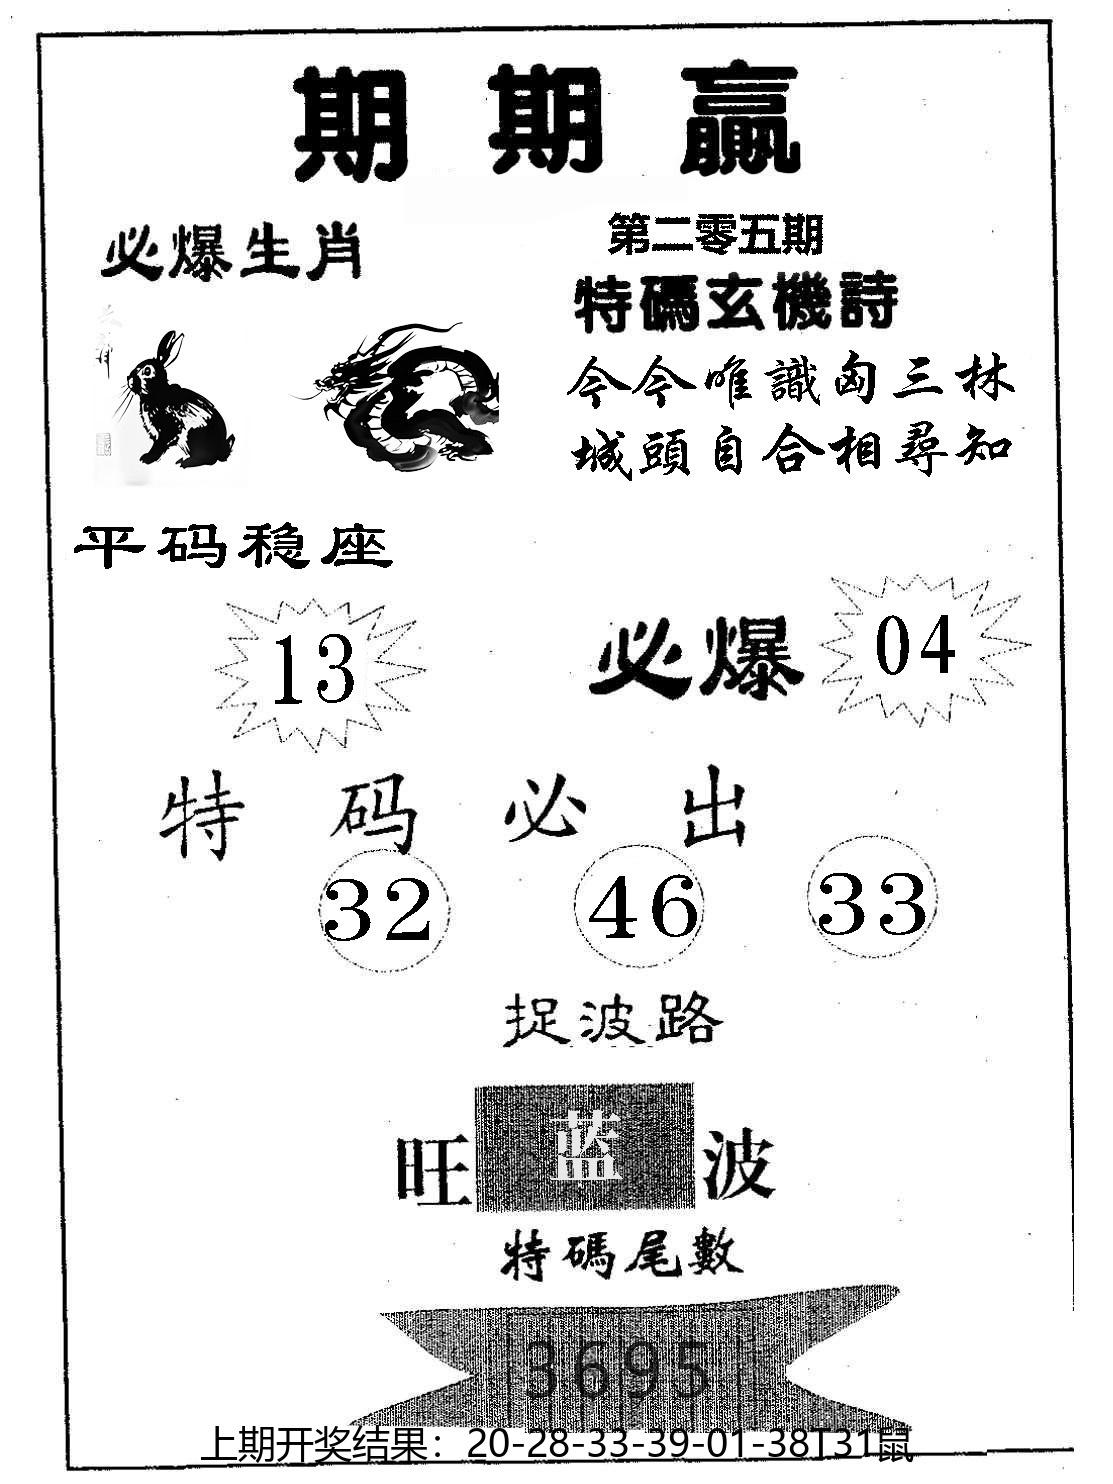 期期贏
必爆生肖
第二零五期
特碼玄機詩
今今唯識匈三林
城頭自合相尋知
平码稳座
13
必爆
04
特码必出
32 46 33
捉波路
旺 蓝 波
特碼尾數
3695
上期开奖结果：20-28-33-39-01-38T31鼠